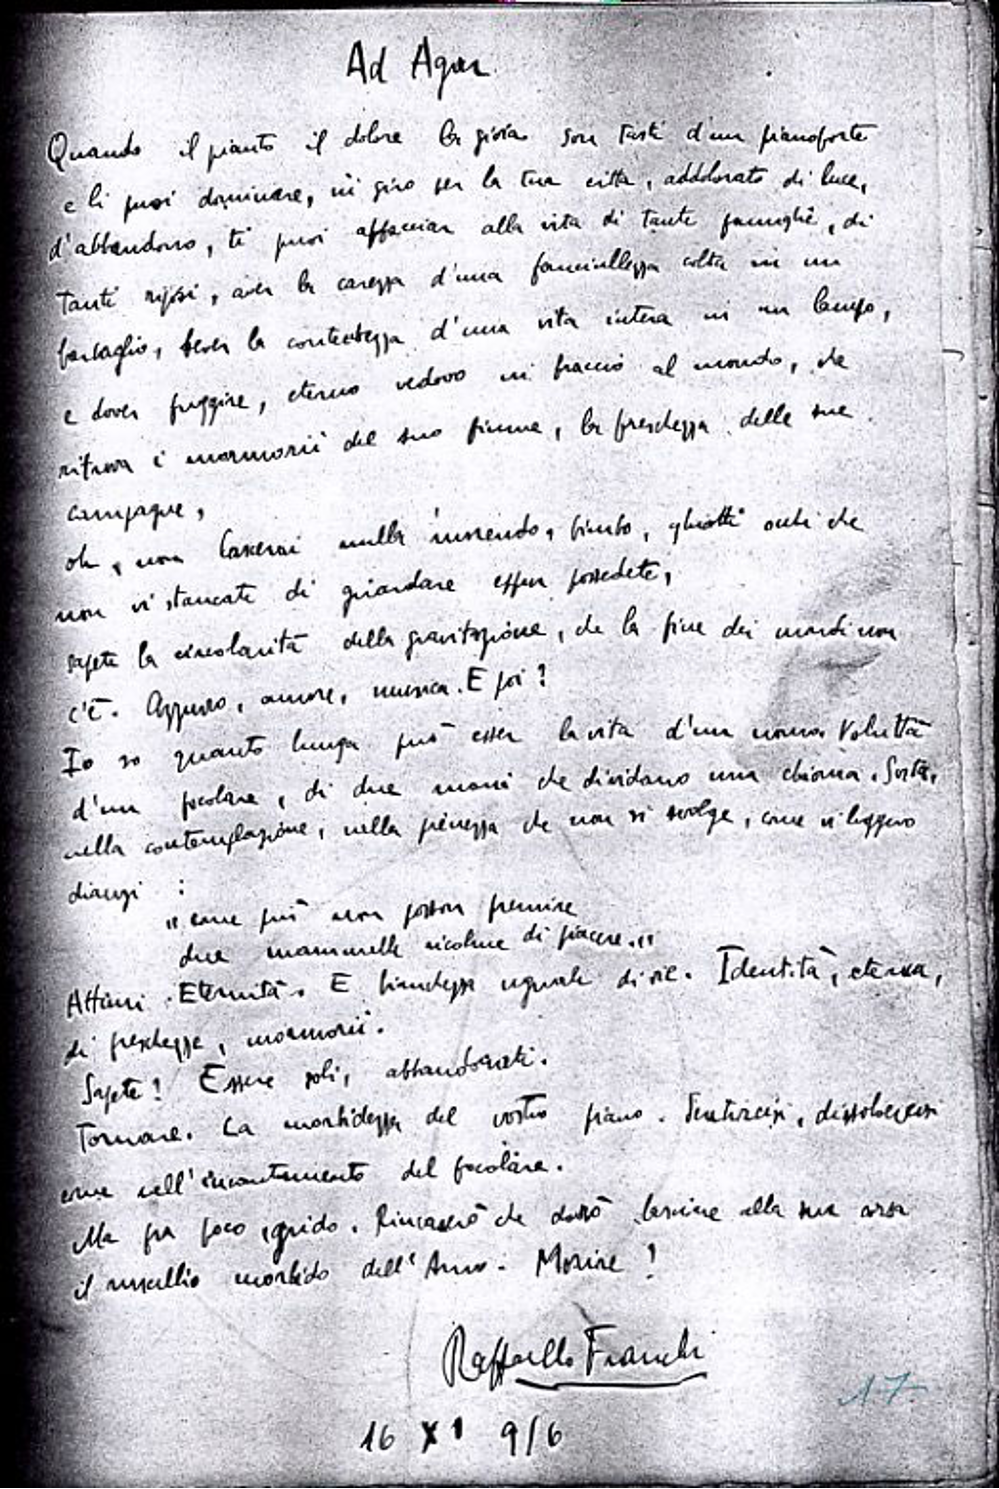 Ad Agar
Quando il pianto il dolore la gioia son tasti d'un pianoforte
e li puoi dominare, in giro per la tua città, addolorato di luce,
d'abbandono, ti puoi affacciar alla vita di tante famiglie, di
tanti riposi, aver la carezza d'una fanciullezza colta in un
barbaglio, bever la contentezza d'una vita intera in un lampo,
e dover fuggire, eterno vedovo in faccia al mondo, che
ritrova i mormorii del suo fiume, la freschezza delle sue
campagne,
oh, non lascerai nulla morendo, bimbo, ghiotti occhi che
non vi stancate di guardare esser possedete,
sapete la circolarità della gravitazione, che la fine dei mondi non
c'è. Azzurro, amore, musica. E poi?
Io so quanto lunga può esser la vita d'un uomo. Voluttà
d'un focolare, di due mani che dividano una chioma. Sosta,
nella contemplazione, nella pienezza che non si svolge, come vi leggevo
dianzi :
"come può non posson fremire
due mammelle ricolme di piacere."
Attimi. Eternità. E bianchezza uguale di sé. Identità, eterna,
di freschezze, mormorii.
Sapete! Essere soli, abbandonati.
Tornare. La morbidezza del vostro piano. Sentircisi, dissolvercisi
come nell'incantamento del focolare.
Ma fra poco, grido. Rincaserò che darò lasciare alla sua arsa
il morbido dell'Arno. Morire!
Raffaello Franchi
16 XI 916
17